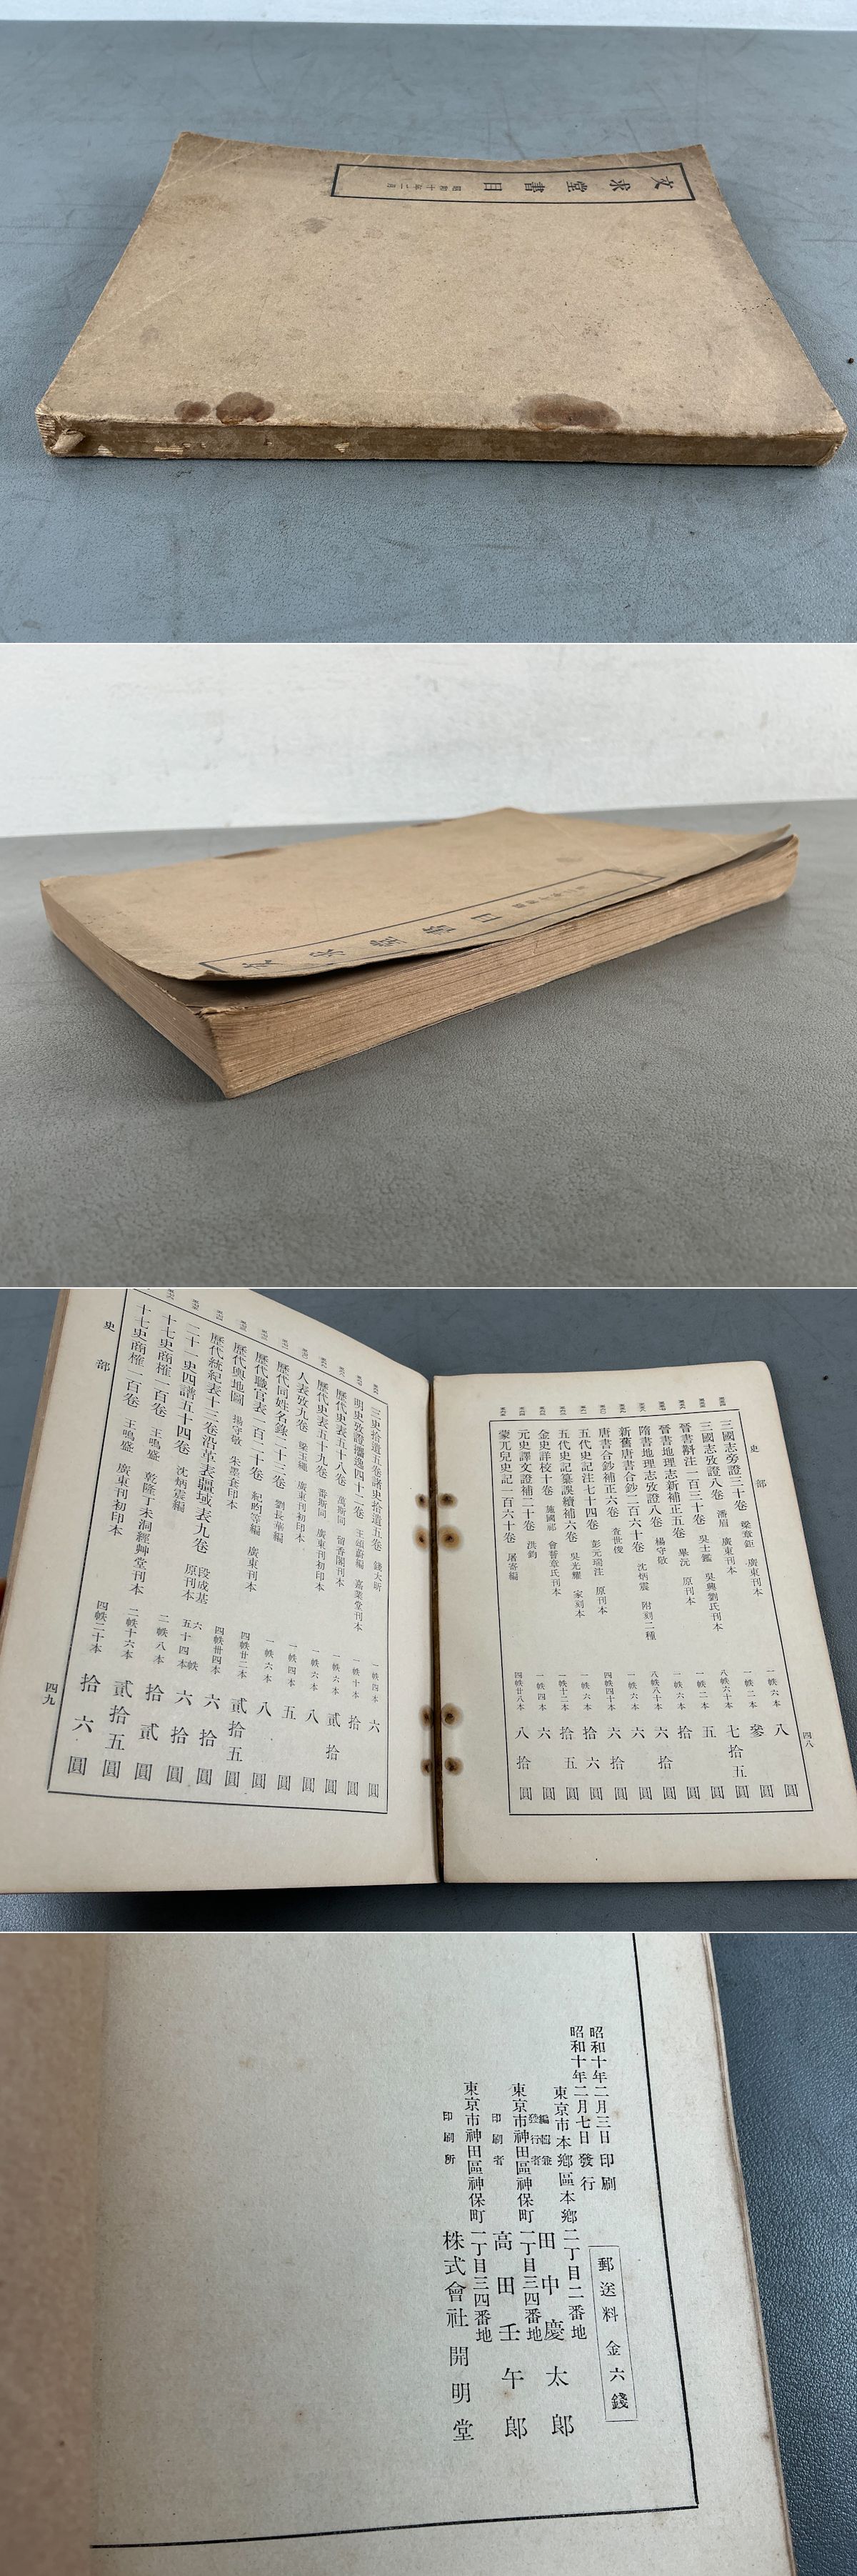 文求堂書目
昭和十年二月
史部
三國志旁證三十卷 梁章鉅 廣東刊本 一帙六本 八圓
三國志攷證八卷 潘眉 廣東刊本 一帙二本 參圓
晉書斠注一百三十卷 吳士鑑 吳興劉氏刊本 八帙六十本 七拾五圓
晉書地理志新補正五卷 畢沅 原刊本 一帙二本 五圓
隋書地理志攷證八卷 楊守敬 一帙六本 拾圓
新舊唐書合鈔二百六十卷 沈炳震 附刻二種 八帙八十本 六拾圓
唐書合鈔補正六卷 查世倓 一帙六本 六圓
五代史記注七十四卷 彭元瑞注 原刊本 四帙四十本 六拾圓
五代史記纂誤續補六卷 吳光耀 家刻本 一帙六本 拾六圓
金史詳校十卷 施國祁 會稽章氏刊本 一帙十二本 拾五圓
元史譯文證補二十卷 洪鈞 一帙四本 六圓
蒙兀兒史記一百六十卷 屠寄編 四帙廿八本 八拾圓
四八
三史拾遺五卷諸史拾遺五卷 錢大昕 一帙四本 六圓
明史攷證攟逸四十二卷 王頌蔚編 嘉業堂刊本 一帙十本 拾圓
歷代史表五十八卷 萬斯同 留香閣刊本 一帙六本 貳拾圓
歷代史表五十九卷 萬斯同 廣東刊初印本 一帙六本 八圓
人表攷九卷 梁玉繩 廣東刊初印本 一帙四本 五圓
歷代同姓名錄二十三卷 劉長華編 一帙六本 八圓
歷代職官表一百二十卷 紀昀等編 廣東刊本 四帙廿二本 貳拾五圓
歷代輿地圖 楊守敬 朱墨套印本 四帙卅四本 六拾圓
歷代統紀表十三卷沿革表疆域表九卷 段成基 原刊本 六帙五十四本 六拾圓
二十一史四譜五十四卷 沈炳震編 二帙八本 拾貳圓
十七史商榷一百卷 王鳴盛 乾隆丁未洞涇艸堂刊本 二帙十六本 貳拾五圓
十七史商榷一百卷 王鳴盛 廣東刊初印本 四帙二十本 拾六圓
史部
四九
昭和十年二月三日印刷
昭和十年二月七日發行
郵送料金六錢
東京市本鄉區本鄉二丁目二番地
編輯兼發行者 田中慶太郎
東京市神田區神保町一丁目三四番地
印刷者 高田壬午郎
東京市神田區神保町一丁目三四番地
印刷所 株式會社開明堂